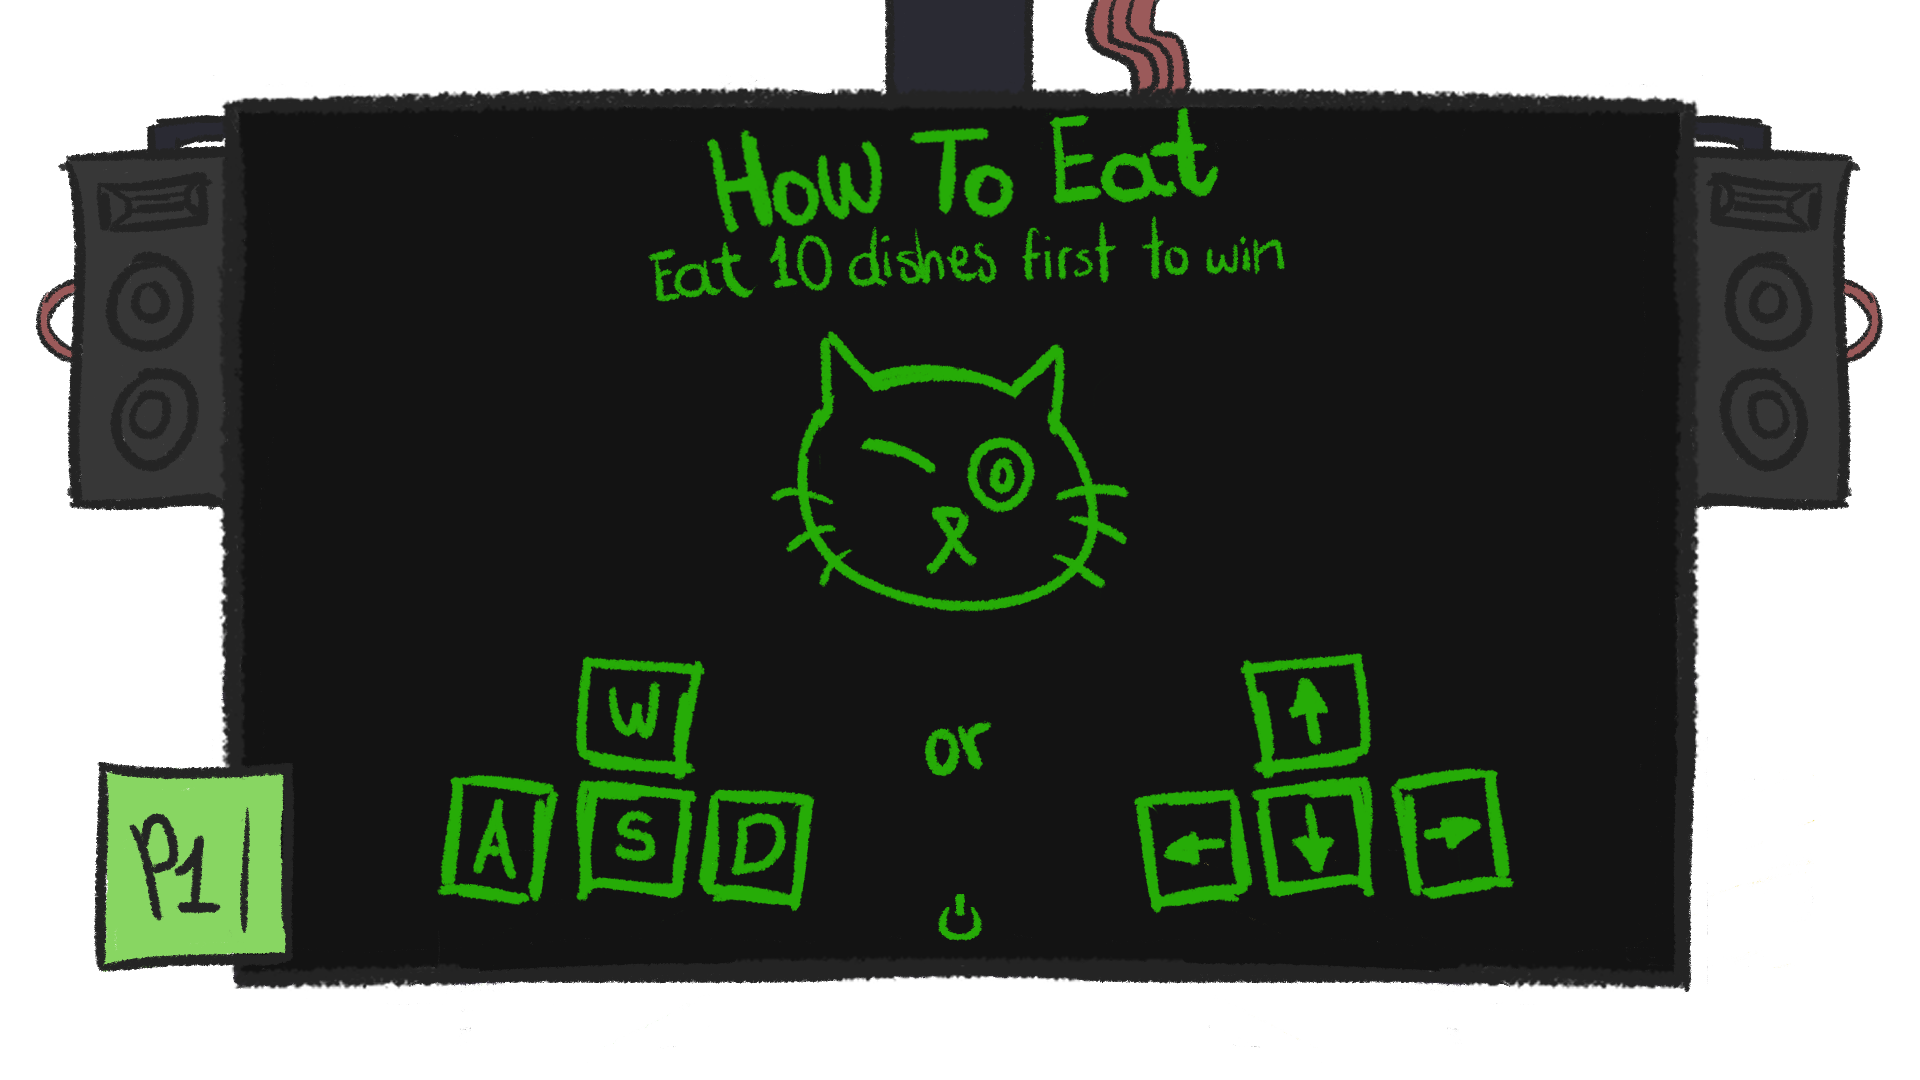 How To Eat
Eat 10 dishes first to win
W
A S D
or
↑
← ↓ →
P1|